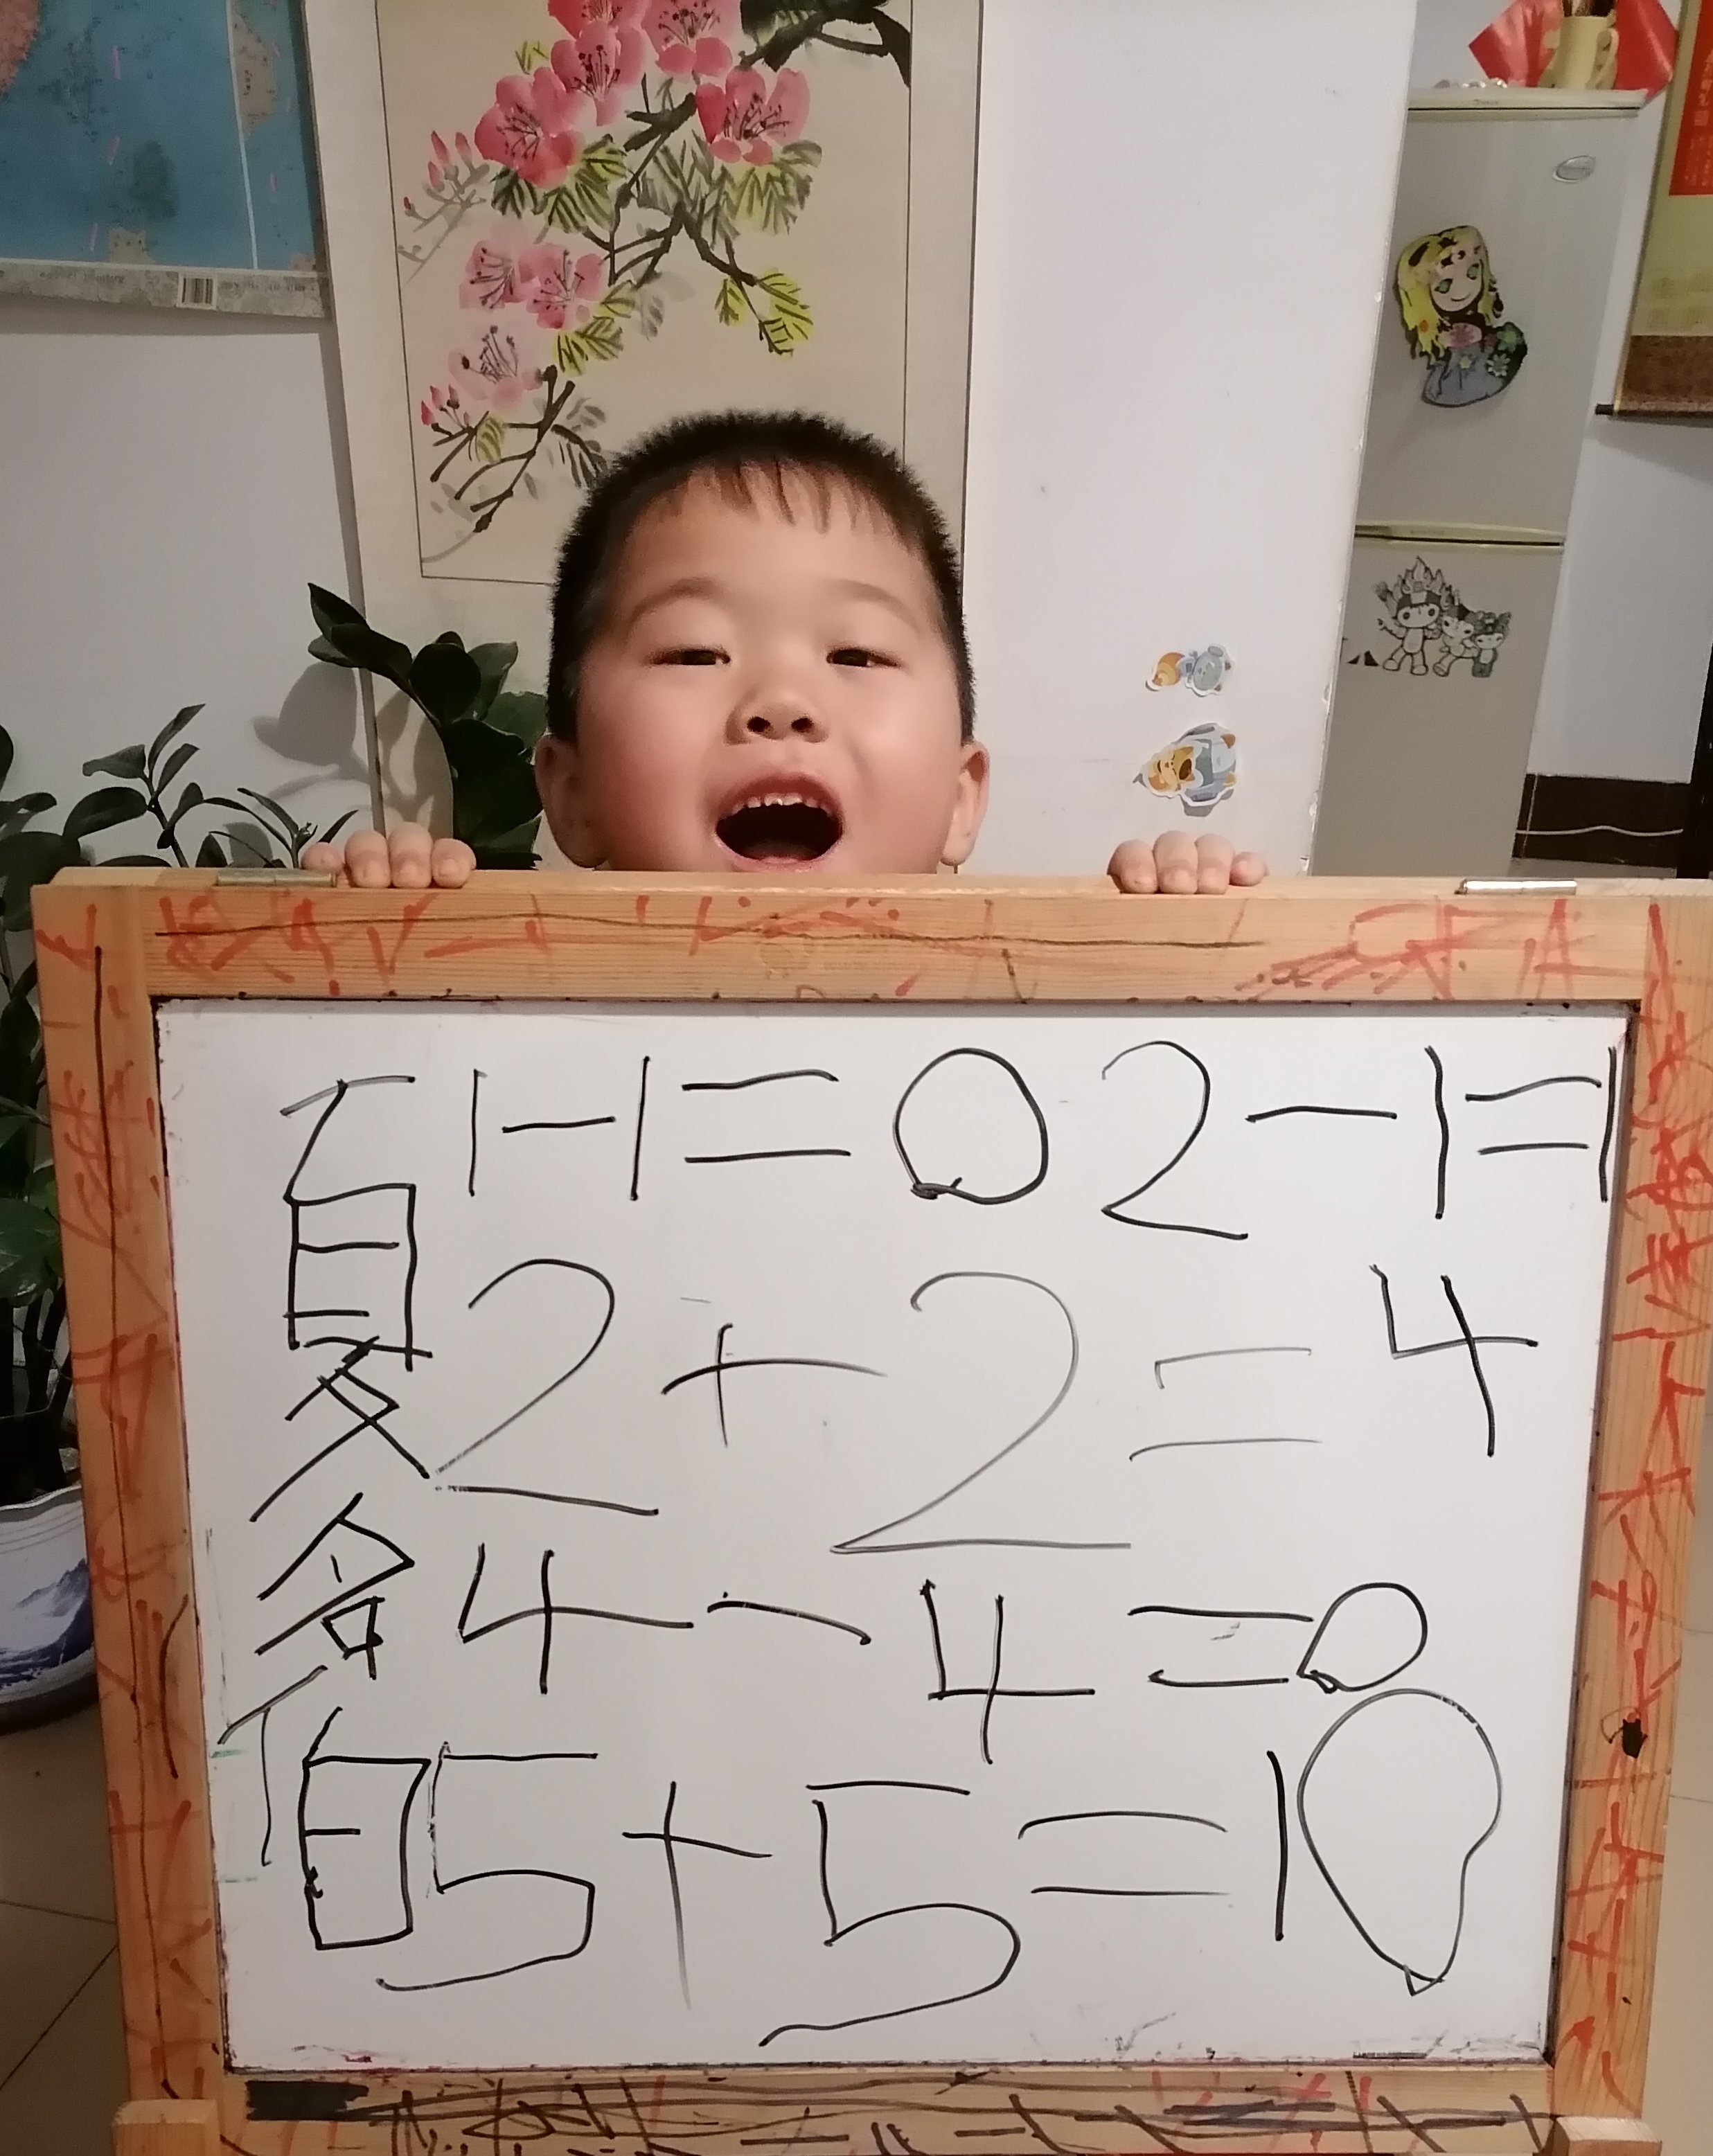 夏名伯
1-1=0 2-1=1
2+2=4
4-4=0
5+5=10